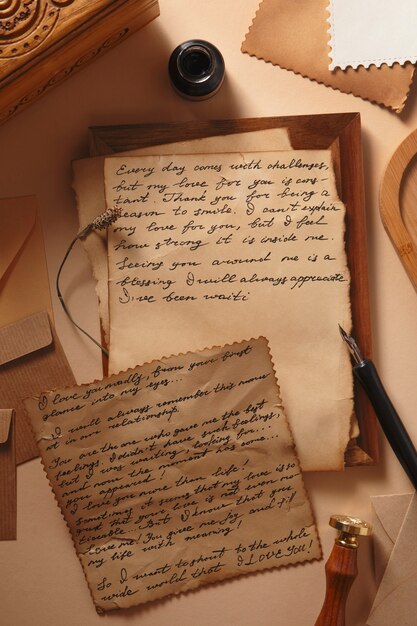 Every day comes with challenges,
but my love for you is cons-
tant. Thank you for being a
reason to smile. I can't explain
my love for you, but I feel
how strong it is inside me.
Seeing you around me is a
blessing I will always appreciate
I've been waiti
I love you madly, from your first
glance into my eyes...
I will always remember this
at in our relationship.
You are the one who gave me the best
feelings I didn't have such feelings,
but I was waiting, looking for...
and now the moment has come...
you appeared!
I love you more than life!
Sometimes it seems that my love is so
that your love is not even no-
ticeable. But I know that you
Love me! You give me joy and fill
my life with meaning!
So I want to shout to the whole
wide world that I LOVE YOU!